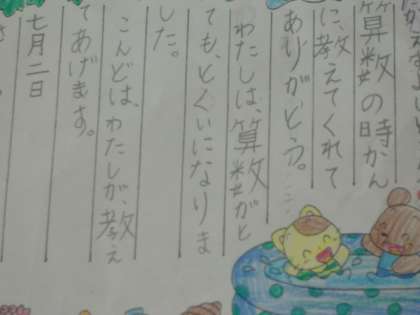 算数の時かん
に、教えてくれて
ありがどう。
わたしは、算数がと
ても、とくいになりま
した。
こんどは、わたしが、教え
てあげます。
七月二日